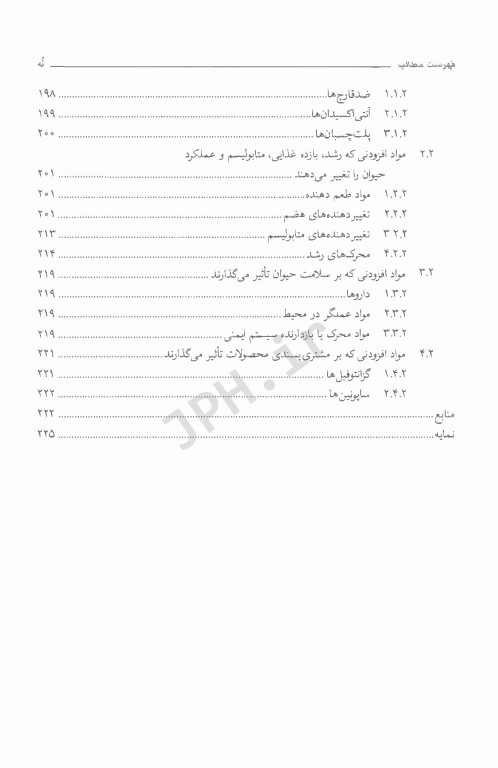 فهرست مطالب نُه
۱.۱.۲ ضدقارچ‌ها ۱۹۸
۲.۱.۲ آنتی‌اکسیدان‌ها ۱۹۹
۳.۱.۲ پلت‌چسبان‌ها ۲۰۰
۲.۲ مواد افزودنی که رشد، بازده غذایی، متابولیسم و عملکرد
حیوان را تغییر می‌دهند ۲۰۱
۱.۲.۲ مواد طعم دهنده ۲۰۱
۲.۲.۲ تغییردهنده‌های هضم ۲۰۱
۳ ۲.۲ تغییردهنده‌های متابولیسم ۲۱۳
۴.۲.۲ محرک‌های رشد ۲۱۴
۳.۲ مواد افزودنی که بر سلامت حیوان تأثیر می‌گذارند ۲۱۹
۱.۳.۲ داروها ۲۱۹
۲.۳.۲ مواد عملگر در محیط ۲۱۹
۳.۳.۲ مواد محرک یا بازدارنده سیستم ایمنی ۲۱۹
۴.۲ مواد افزودنی که بر مشتری‌پسندی محصولات تأثیر می‌گذارند ۲۲۱
۱.۴.۲ گزانتوفیل‌ها ۲۲۱
۲.۴.۲ ساپونین‌ها ۲۲۲
منابع ۲۲۲
نمایه ۲۲۵
JPH.ir